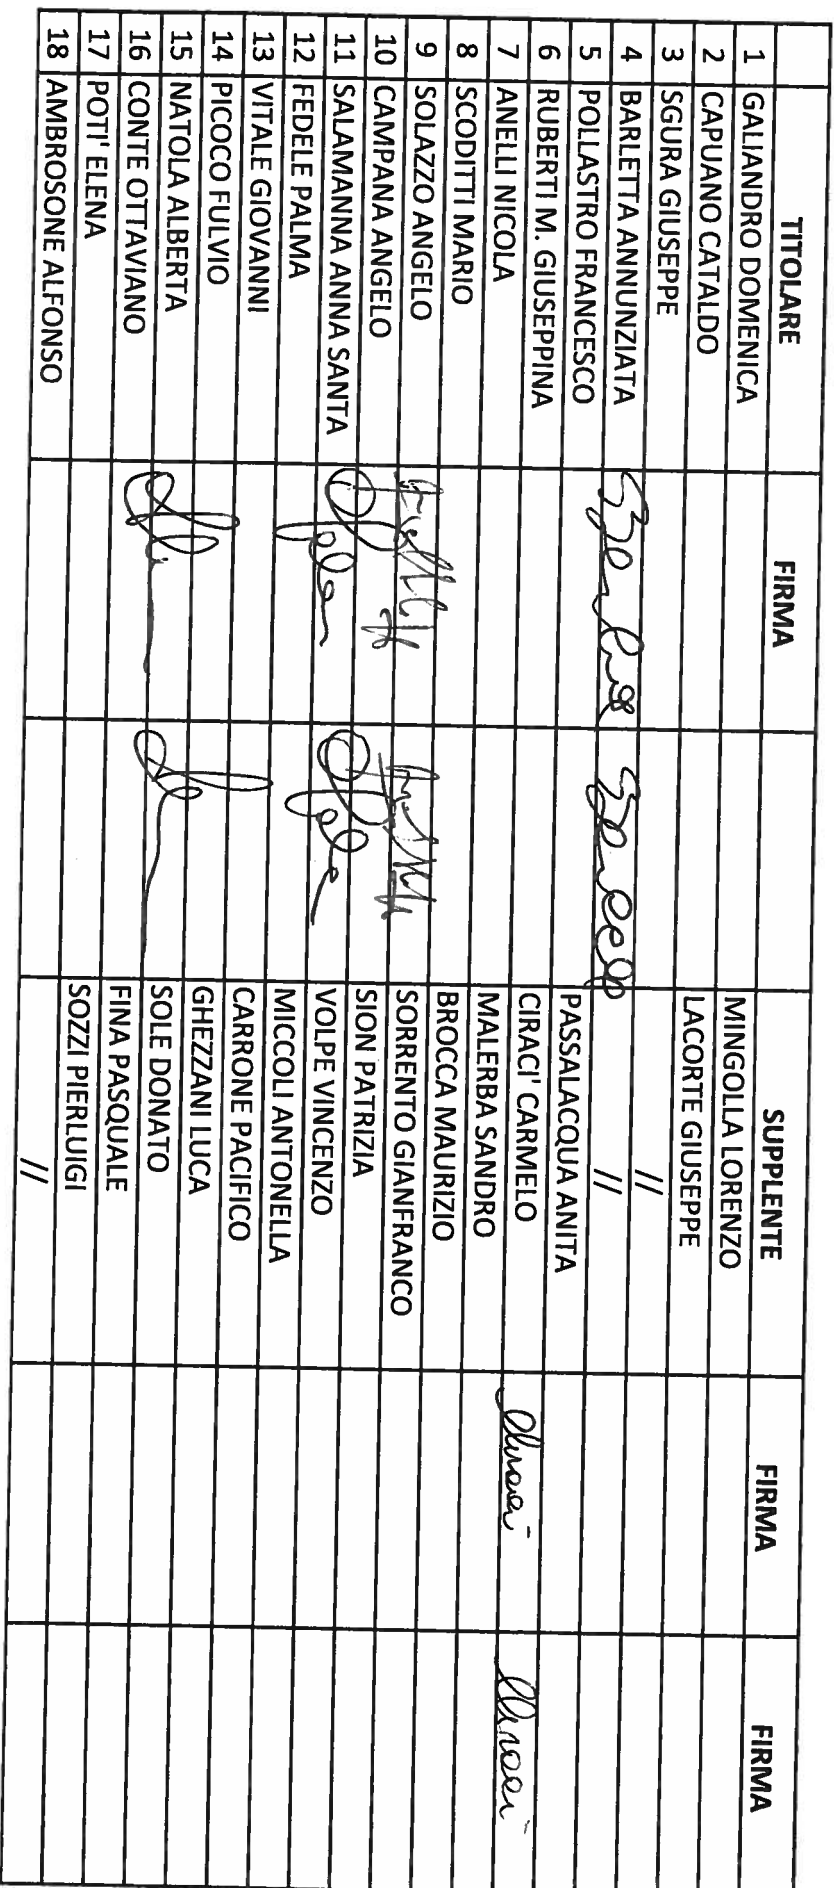 TITOLARE FIRMA SUPPLENTE FIRMA FIRMA
1 GALIANDRO DOMENICA MINGOLLA LORENZO
2 CAPUANO CATALDO LACORTE GIUSEPPE
3 SGURA GIUSEPPE //
4 BARLETTA ANNUNZIATA //
5 POLLASTRO FRANCESCO PASSALACQUA ANITA
6 RUBERTI M. GIUSEPPINA CIRACI' CARMELO Ciracì Ciracì
7 ANELLI NICOLA MALERBA SANDRO
8 SCODITTI MARIO BROCCA MAURIZIO
9 SOLAZZO ANGELO SORRENTO GIANFRANCO
10 CAMPANA ANGELO SION PATRIZIA
11 SALAMANNA ANNA SANTA VOLPE VINCENZO
12 FEDELE PALMA MICCOLI ANTONELLA
13 VITALE GIOVANNI CARRONE PACIFICO
14 PICOCO FULVIO GHEZZANI LUCA
15 NATOLA ALBERTA SOLE DONATO
16 CONTE OTTAVIANO FINA PASQUALE
17 POTI' ELENA SOZZI PIERLUIGI
18 AMBROSONE ALFONSO //